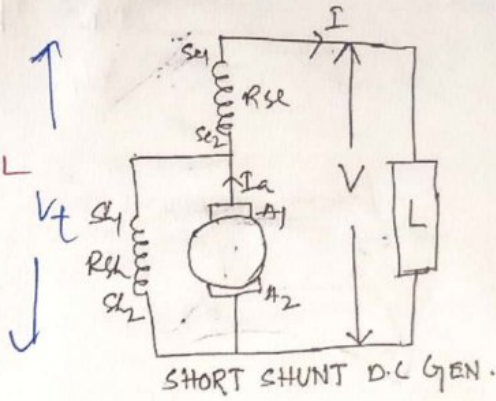 I
Se1
Rse
Se2
L
Vt
Ia
V
Sh1
A1
L
Rsh
Sh2
A2
SHORT SHUNT D.C GEN.